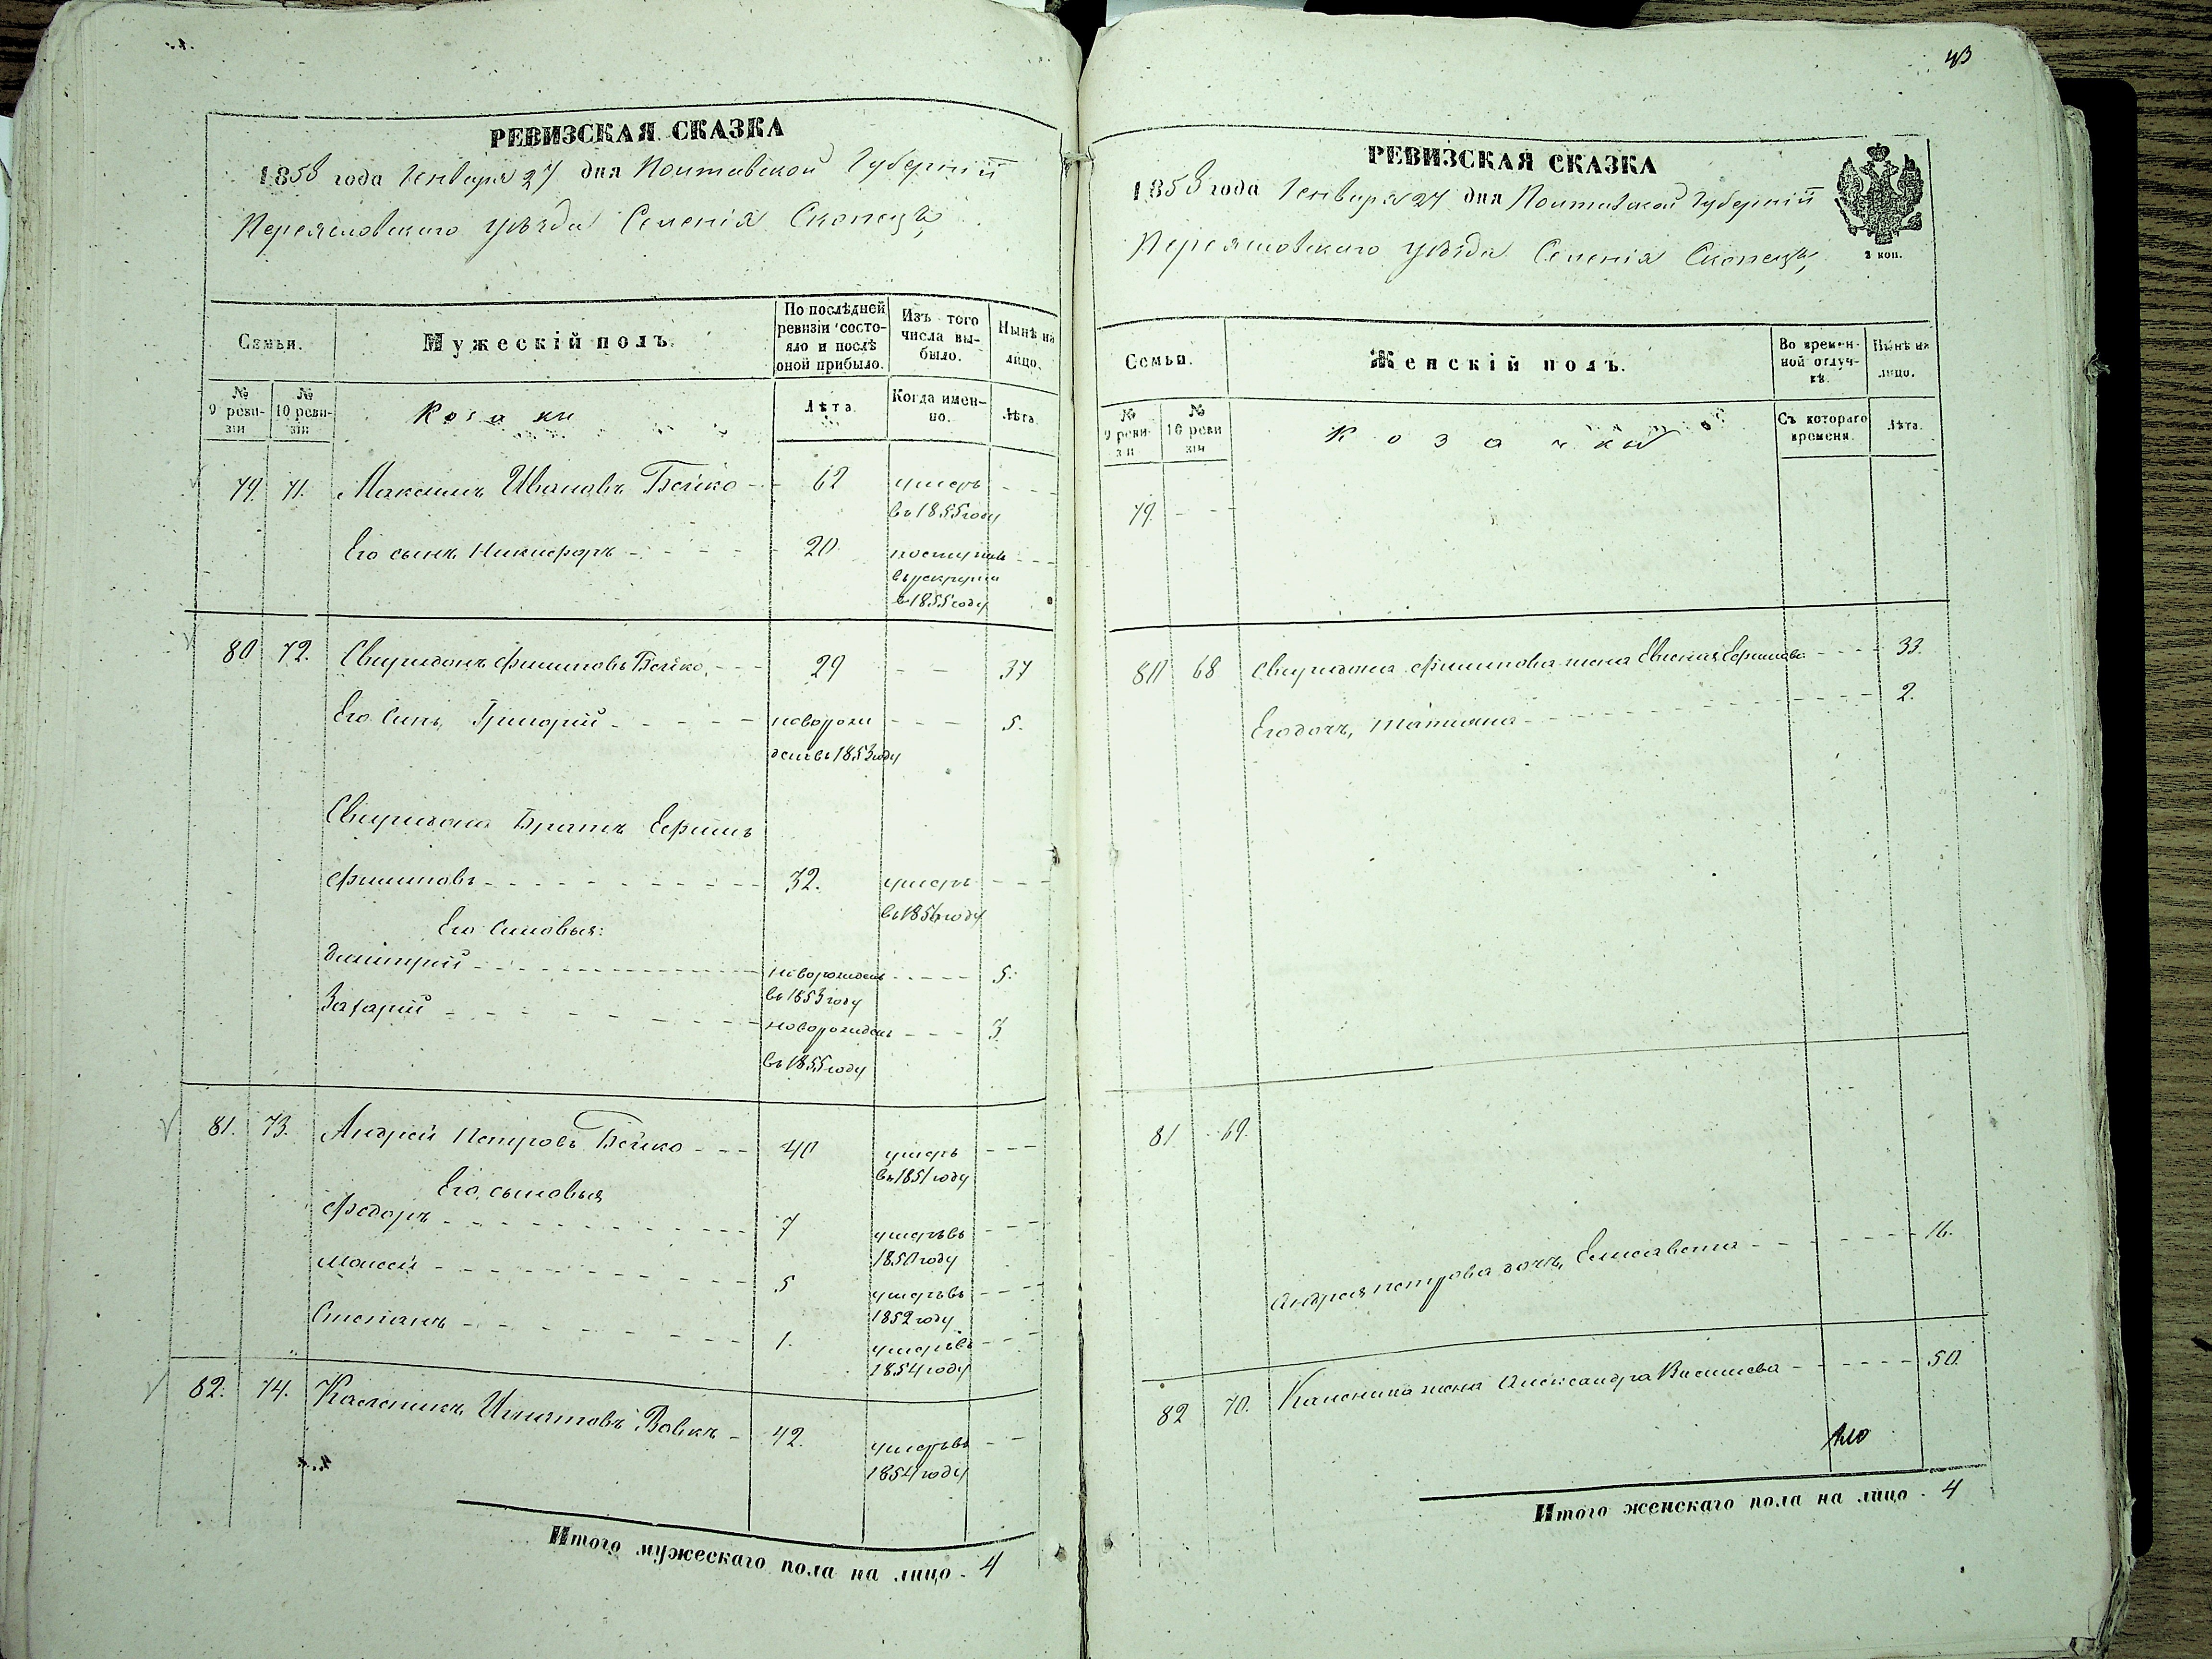 43
РЕВИЗСКАЯ СКАЗКА
1858 года Генваря 27 дня Полтавской Губерніи
Переясловскаго уѣзда Селенія Скопецъ,
Семьи.
Мужескій полъ.
По послѣдней ревизіи состояло и послѣ оной прибыло.
Изъ того числа выбыло.
Нынѣ на лицо.
№ 9 ревизіи
№ 10 ревизіи
Козаки
Лѣта.
Когда именно.
Лѣта.
79. 71. Максимъ Ивановъ Бойко - - 62 умеръ - - -
въ 1855 году
Его сынъ Никифоръ - - - - - 20 поступилъ - - -
въ рекруты
в 1855 году
80 72. Свиридонъ Филиповъ Бойко, - - - 29 - - 37
Его Синъ, Григорий - - - - - новорож - - - 5.
денъ въ 1853 году
Свиридона Братъ Ефимъ
Филиповъ - - - - - - - 32. умеръ - - -
въ 1856 году
Его Синовья:
Димитрий - - - - - - - новорожденъ - - - - 5.
въ 1853 году
Захарий - - - - - - - новорожденъ - - - 3.
въ 1855 году
81. 73. Андрей Петровъ Бойко - - - 40 умеръ - - -
въ 1851 году
Его сыновья
Федоръ - - - - - - - 7 умеръ въ - - -
1850 году
Моисей - - - - - - - 5 умеръ въ - - -
1852 году
Степанъ - - - - - - - 1. умеръ въ - - -
1854 году
82. 74. Каленикъ Игнатовъ Вовкъ - 42. умеръ въ - -
1854 году
Итого мужескаго пола на лицо - 4
РЕВИЗСКАЯ СКАЗКА
1858 года Генваря 27 дня Полтавской Губерніи
Переясловскаго уѣзда Селенія Скопецъ,
2 коп.
Семьи.
Женскій полъ.
Во временной отлучкѣ.
Нынѣ на лицо.
№ 9 ревизіи
№ 10 ревизіи
Козачки
Съ котораго времени.
Лѣта.
79. - - -
80 68 Свиридона Филипова жена Евгения Ефимова - - - - 33.
Его дочь, Татиана - - - - - 2.
81 69.
Андрея Петрова дочь, Елисавета - - - - - 16.
82 70. Каленика жена Александра Васильева - - - - - 50.
Итого женскаго пола на лицо - 4